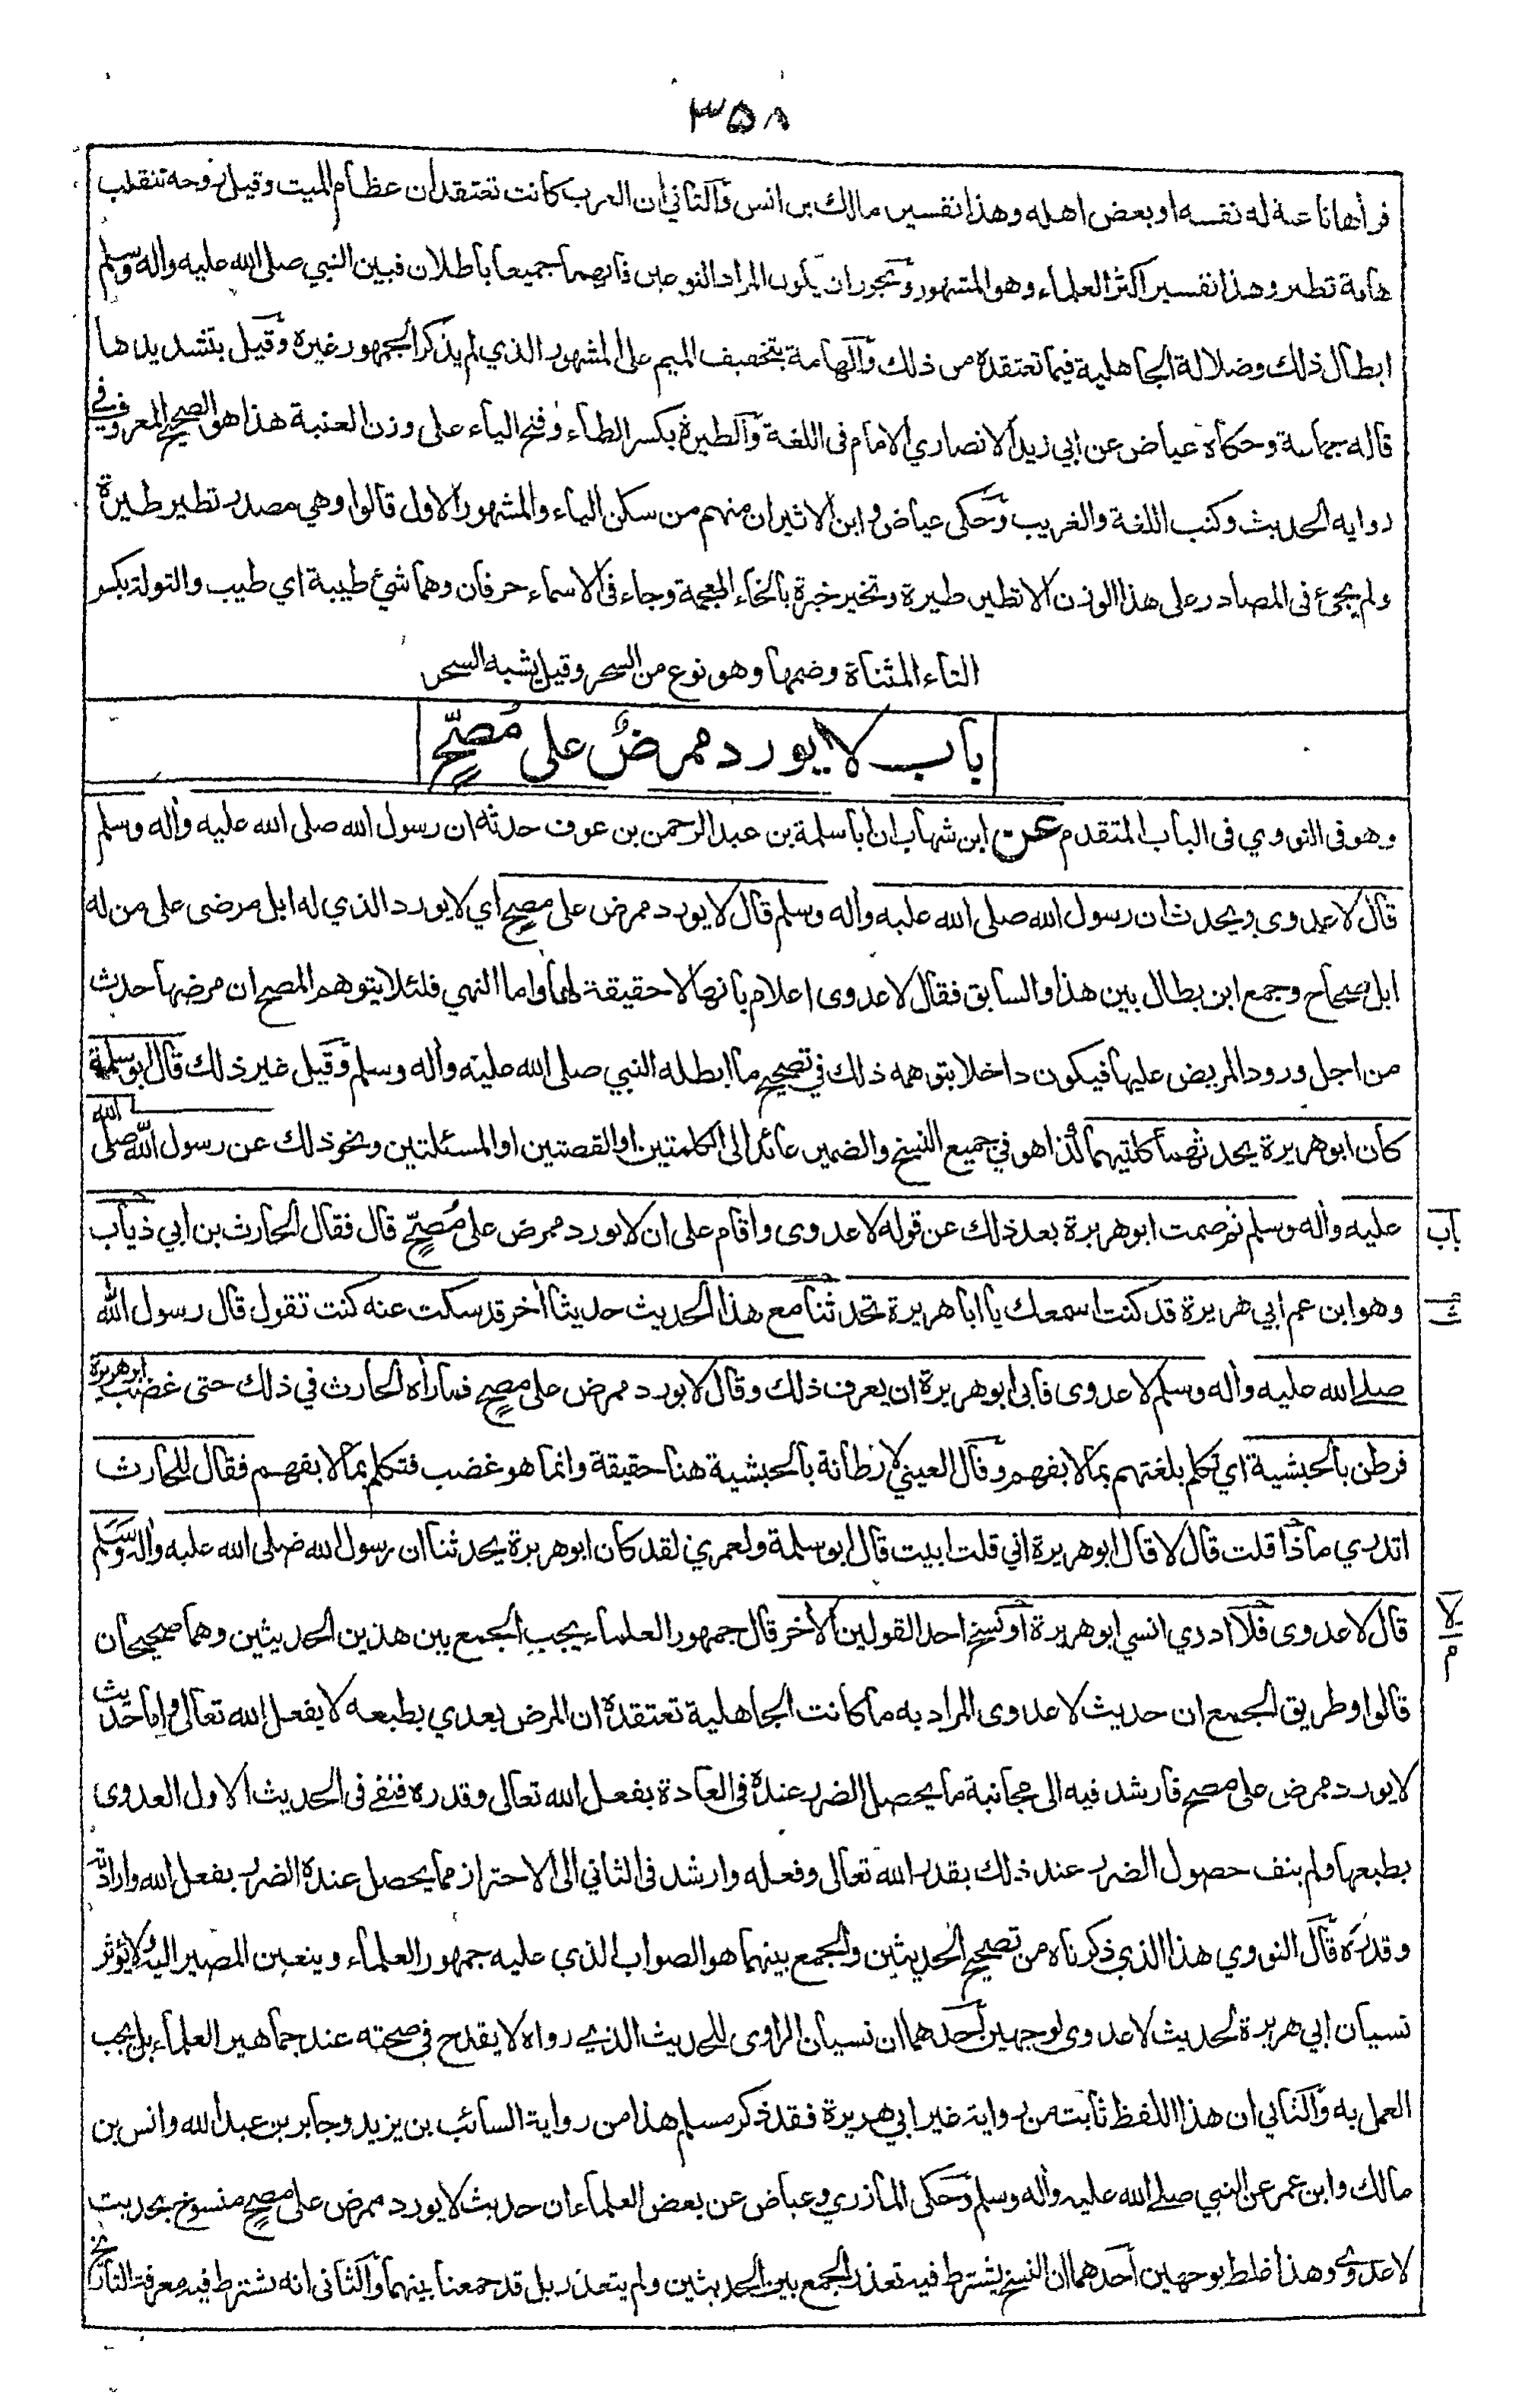 ٣٥٨
فرأها ناعية له نفسه او بعض اهله وهذا تفسير مالك بن انس والثاني أن العرب كانت تعتقد ان عظام الميت وقيل روحه تنقلب
هامة تطير وهذا تفسير اكثر العلماء وهو المشهور ويجوز ان يكون المراد النوعين فانهما جميعا باطلان فبين النبي صلى الله عليه واله وسلم
ابطال ذلك وضلالة الجاهلية فيما تعتقده من ذلك والهامة بتخفيف الميم على المشهور الذي لم يذكر الجمهور غيره وقيل بتشديدها
قاله جماعة وحكاه عياض عن ابي زيد الانصاري الامام فى اللغة والطيرة بكسر الطاء وفتح الياء على وزن العنبة هذا هو الصحيح المعروف في
رواية الحديث وكتب اللغة والغريب وحكى عياض وابن الاثير ان منهم من سكن الياء والمشهور الاول قالوا وهي مصدر تطير طيرة
ولم يجئ فى المصادر على هذا الوزن الا تطير طيرة وتخير خيرة بالخاء المعجمة وجاء فى الاسماء حرفان وهما شيئ طيبة اي طيب والتولة بكسر
التاء المثناة وضمها وهو نوع من السحر وقيل يشبه السحر
باب لا يورد ممرضٌ على مُصِحٍّ
وهو فى النووي فى الباب المتقدم عن ابن شهاب ان أبا سلمة بن عبد الرحمن بن عوف حدثه ان رسول الله صلى الله عليه واله وسلم
قال لا عدوى ويحدث ان رسول الله صلى الله عليه واله وسلم قال لا يورد ممرض على مصح اي لا يورد الذي له ابل مرضى على من له
ابل صحاح وجمع ابن بطال بين هذا والسابق فقال لا عدوى اعلام بانها لا حقيقة لها واما النهي فلئلا يتوهم المصح ان مرضها حدث
من اجل ورود المريض عليها فيكون داخلا بتوهمه ذلك في تصحيح ما ابطله النبي صلى الله عليه واله وسلم وقيل غير ذلك قال ابو سلمة
كان ابو هريرة يحدثهما كلتيهما كذا هو في جميع النسخ والضمير عائد الى الكلمتين او القصتين او المسئلتين ونحو ذلك عن رسول الله صلى الله
عليه واله وسلم ثم صمت ابو هريرة بعد ذلك عن قوله لا عدوى واقام على ان لا يورد ممرض على مُصِحٍّ قال فقال الحارث بن ابي ذباب
باب
وهو ابن عم ابي هريرة قد كنت اسمعك يا ابا هريرة تحدثنا مع هذا الحديث حديثا أخر قد سكت عنه كنت تقول قال رسول الله
ث
صلى الله عليه واله وسلم لا عدوى فابى ابو هريرة ان يعرف ذلك وقال لا يورد ممرض على مصح فماراه الحارث في ذلك حتى غضب ابو هريرة
فرطن بالحبشية اي تكلم بلغتهم بما لا يفهم وقال العيني لا رطانة بالحبشية هنا حقيقة وانما هو غضب فتكلم بما لا يفهم فقال للحارث
اتدري ماذا قلت قال لا قال ابو هريرة اني قلت ابيت قال ابو سلمة ولعمري لقد كان ابو هريرة يحدثنا ان رسول الله صلى الله عليه واله وسلم
قال لا عدوى فلا ادري انسي ابو هريرة او نسخ احد القولين الأخر قال جمهور العلماء يجب الجمع بين هذين الحديثين وهما صحيحان
لا
م
قالوا وطريق الجمع ان حديث لا عدوى المراد به ما كانت الجاهلية تعتقده ان المرض يعدي بطبعه لا بفعل الله تعالى واما حديث
لا يورد ممرض على مصح فارشد فيه الى مجانبة ما يحصل الضرر عنده فى العادة بفعل الله تعالى وقدره فنفى فى الحديث الاول العدوى
بطبعها ولم ينف حصول الضرر عند ذلك بقدر الله تعالى وفعله وارشد فى الثاني الى الاحتراز مما يحصل عنده الضرر بفعل الله وارادته
وقدره قال النووي هذا الذي ذكرناه من تصحيح الحديثين والجمع بينهما هو الصواب الذي عليه جمهور العلماء ويتعين المصير اليه ولا يؤثر
نسيان ابي هريرة لحديث لا عدوى لوجهين أحدهما ان نسيان الراوى للحديث الذي رواه لا يقدح في صحته عند جماهير العلماء بل يجب
العمل به والثاني ان هذا اللفظ ثابت من رواية غير ابي هريرة فقد ذكر مسلم هذا من رواية السائب بن يزيد وجابر بن عبد الله وانس بن
مالك وابن عمر عن النبي صلى الله عليه واله وسلم وحكى المازري وعياض عن بعض العلماء ان حديث لا يورد ممرض على مصح منسوخ بحديث
لا عدوى وهذا غلط بوجهين أحدهما ان النسخ يشترط فيه تعذر الجمع بين الحديثين ولم يتعذر بل قد جمعنا بينهما والثانى انه يشترط فيه معرفة التاريخ